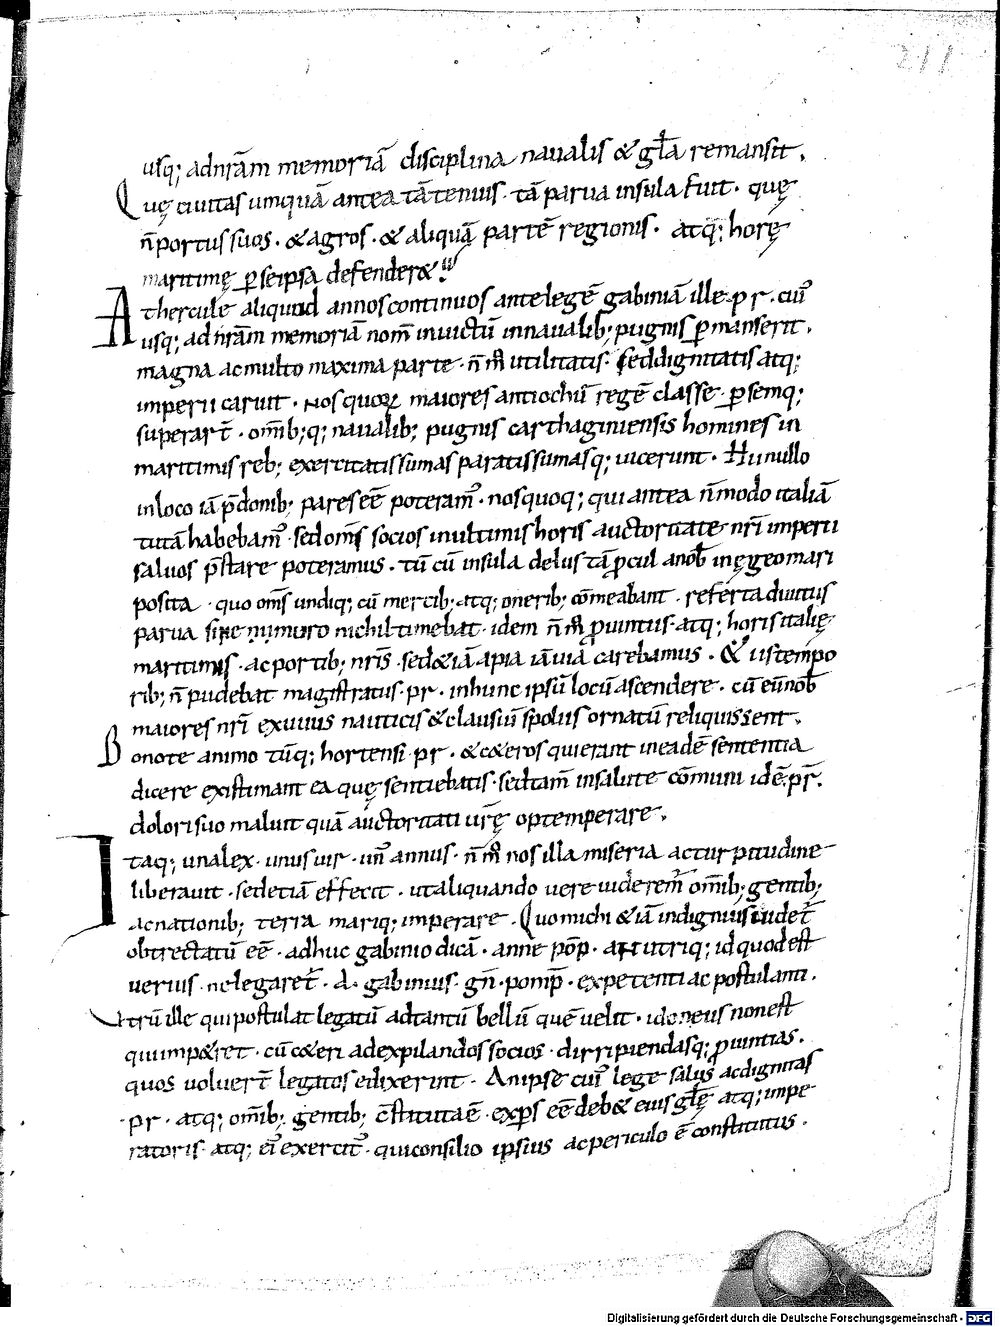 211
usq; adnr̄am memoriā disciplina naualis & gl̄a remansit.
Quę ciuitas umquā antea tā tenuis · tā parua insula fuit · quę
n̄ portus suos · & agros · & aliquā partē regionis · atq; horę
maritimę ꝑ seipsa defender&
At hercule aliquod annos continuos ante legē gabiniā ille · pr · cui᾽
usq; ad nr̄am memoriā nom̄ inuictū in naualib; pugnis ꝑmanserit.
magna ac multo maxima parte · n̄ m̊ utilitatis · sed dignitatis atq;
imperii caruit · Nos quoꝝ maiores antiochū regē classe · ꝑsemq;
superart̄ · om̄ib;q; naualib; pugnis carthaginiensis homines in
maritimis reb; exercitatissumas paratissumasq; uicerunt · Hi nullo
in loco iā p̄donib; pares eē poteram᾽ · nos quoq; qui antea n̄ modo italiā
tutā habebam᾽ · sed om̄s socios in ultimis horis auctoritate nr̄i imperii
saluos p̄stare poteramus · tū cū insula delus tā ꝓcul a nob̄ in ęgeo mari
posita · quo om̄s undiq; cū mercib; atq; onerib; cōmeabant · referta diuitiis
parua sine numuro nichil timebat · idem n̄ m̊ ꝓuintiis atq; horis italię
maritimis · ac portib; nr̄is · sed & iā apia iā uiā carebamus · & iis tempo
rib; n̄ pudebat magistratus · pr · in hunc ipsū locū ascendere · cū eū nob̄
maiores nr̄i exuuiis nauticis & clausiū spoliis ornatū reliquissent.
Bono te animo tūq; hortensi · pr · & c&eros qui erant in eadē sententia
dicere existimant ea quę sentiebatis · sed tam̄ in salute cōmuni idē · pr̄.
dolori suo maluit quā auctoritati urę̄ optemperare.
Itaq; una lex · unus uir · un᾽ annus · n̄ m̊ nos illa miseria ac turpitudine
liberauit · sed etiā effecit · ut aliquando uere uiderem᾽ om̄ib; gentib;
ac nationib; terra mariq; imperare · Quo michi & iā indignius uidet᾽
obtrectatū eē · adhuc gabinio dicā · anne pōp · an utriq; id quod est
uerius · ne legaret᾽ · A · gabinius · gn̄ · pomp̄ · expetenti ac postulanti.
Utrū ille qui postulat legatū ad tantū bellū quē uelit · idoneus non est
qui imp&ret · cū c&eri ad expilandos socios · dirripiendasq; ꝓuintias.
quos uoluert̄ legatos edixerint · An ipse cui᾽ lege salus ac dignitas
· pr · atq; om̄ib; gentib; c̄stituta ē · expers eē deb& eius glę̄ atq; impe
ratoris · atq; ei᾽ exercit᾽ · qui consilio ipsius ac periculo ē constitutus.
Digitalisierung gefördert durch die Deutsche Forschungsgemeinschaft - DFG